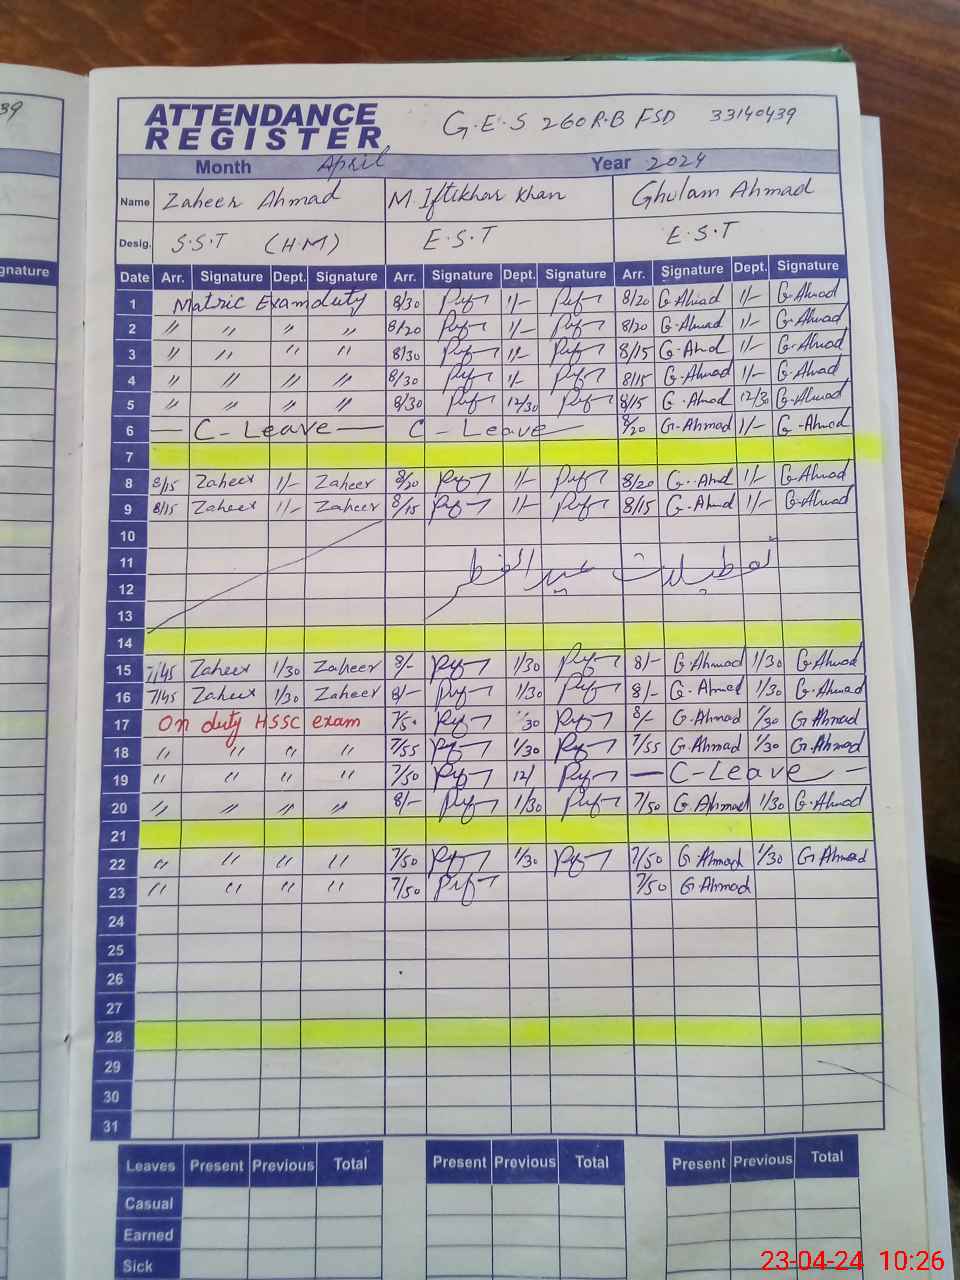 39
ATTENDANCE REGISTER G.E.S 260 R.B FSD 33140439
Month April Year 2024
Name Zaheer Ahmad M. Iftikhar Khan Ghulam Ahmad
Desig. S.S.T (H.M) E.S.T E.S.T
gnature
Date Arr. Signature Dept. Signature Arr. Signature Dept. Signature Arr. Signature Dept. Signature
1 Matric Exam duty 8/30 1/- 8/20 G Ahmad 1/- G-Ahmad
2 〃 〃 〃 〃 8/20 1/- 8/20 G-Ahmad 1/- G-Ahmad
3 〃 〃 〃 〃 8/30 1/- 8/15 G-Ahmd 1/- G-Ahmad
4 〃 〃 〃 〃 8/30 1/- 8/15 G-Ahmad 1/- G-Ahmad
5 〃 〃 〃 〃 8/30 12/30 8/15 G-Ahmad 12/30 G-Ahmad
6 — C-Leave — C-Leave — 8/20 G-Ahmad 1/- G-Ahmad
7
8 8/15 Zaheer 1/- Zaheer 8/20 1/- 8/20 G-Ahmd 1/- G-Ahmad
9 8/15 Zaheer 1/- Zaheer 8/15 1/- 8/15 G-Ahmd 1/- G-Ahmad
10
11 تعطیلات عید الفطر
12
13
14
15 7/45 Zaheer 1/30 Zaheer 8/- 1/30 8/- G-Ahmad 1/30 G-Ahmad
16 7/45 Zaheer 1/30 Zaheer 8/- 1/30 8/- G-Ahmed 1/30 G-Ahmad
17 On duty HSSC exam 7/50 1/30 8/- G Ahmad 1/30 G Ahmad
18 〃 〃 〃 〃 7/55 1/30 7/55 G.Ahmad 1/30 G Ahmad
19 〃 〃 〃 〃 7/50 12/ — C-Leave —
20 〃 〃 〃 〃 8/- 1/30 7/50 G.Ahmad 1/30 G-Ahmad
21
22 〃 〃 〃 〃 7/50 1/30 7/50 G Ahmad 1/30 G Ahmad
23 〃 〃 〃 〃 7/50 7/50 G Ahmad
24
25
26
27
28
29
30
31
Leaves Present Previous Total Present Previous Total Present Previous Total
Casual
Earned
Sick
23-04-24 10:26